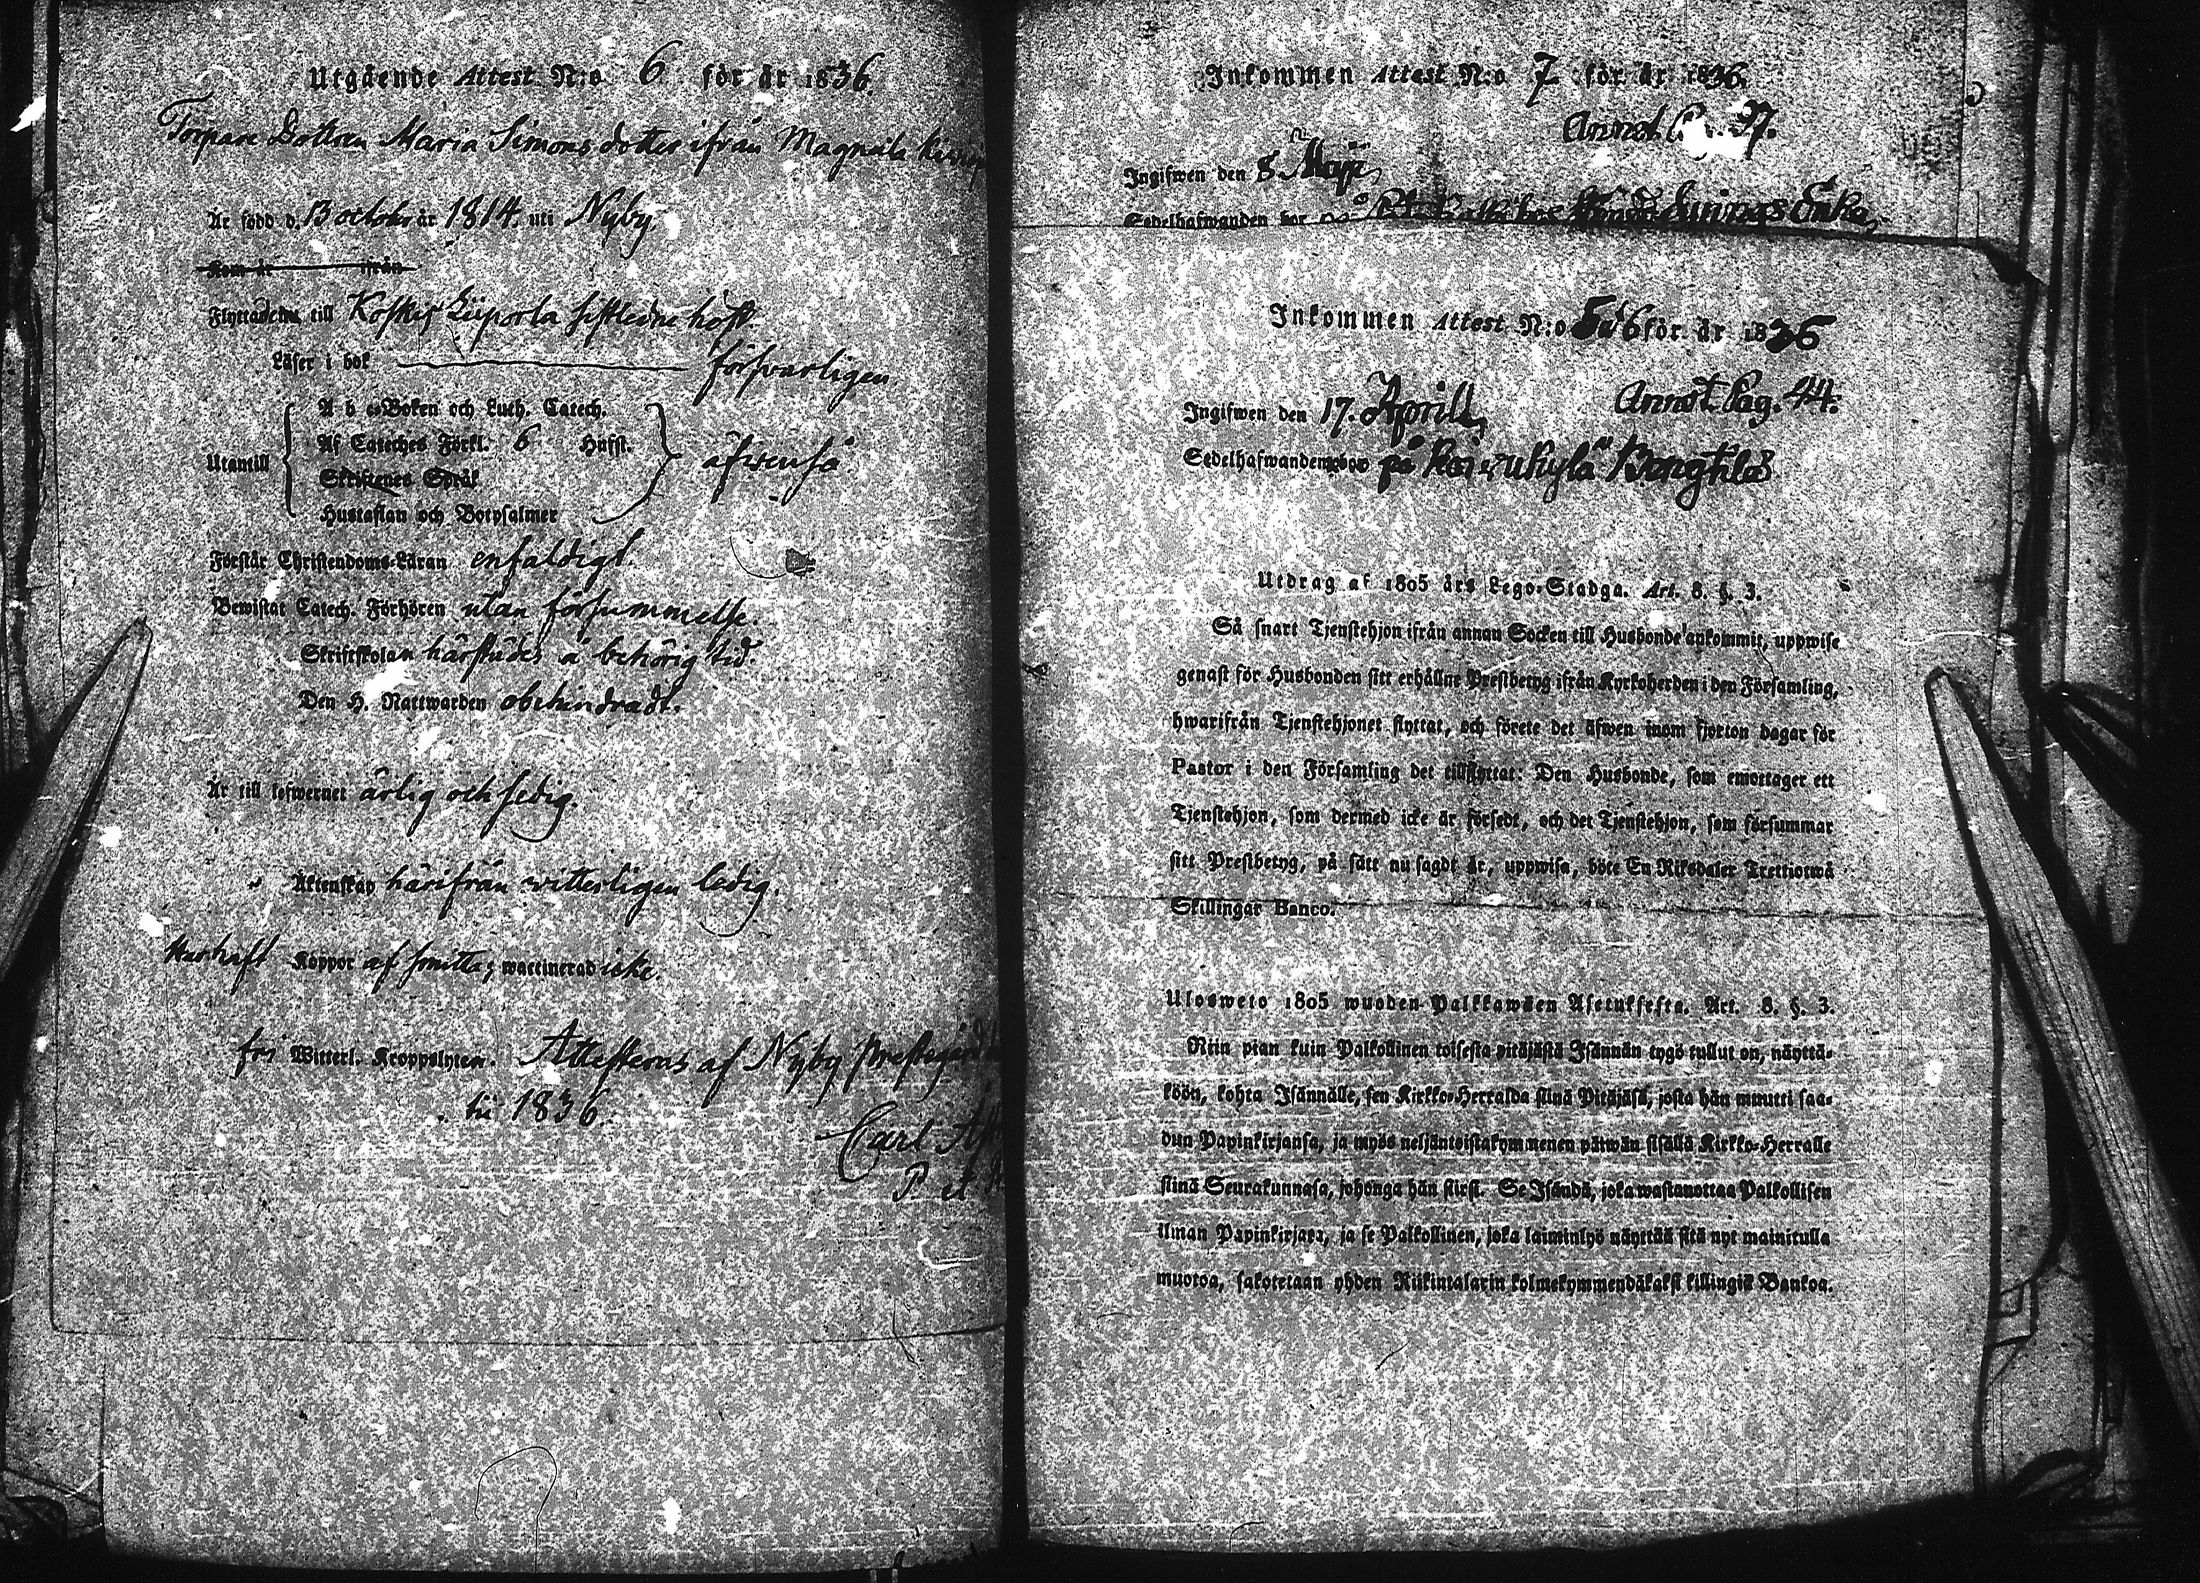 Utgående Attest N:o 6 för år 1836.
Torpare Dottren Maria Simons dotter ifrån Magnula
Är född d. 13 octobr år 1814. uti Nyby.
Kom år ifrån
Flyttade till Koskis Liipola sistledne höst.
Läser i bok försvarligen.
A b c-Boken och Luth. Catech.
Af Cateches Förkl. 6 Hufst.
Utantill äfvenså.
Skriftenes Språk
Hustaflan och Botpsalmer
Förstår Christendoms-Läran enfaldigt.
Bewistat Catech. Förhören utan försummelse.
Skriftskolan härstädes å behörig tid.
Den H. Nattwarden obehindradt.
Är till lefwernet ärlig och sedig.
Äktenskap härifrån witterligen ledig.
Har haft Koppor af smitta; waccinerad icke.
fri Witterl. Kroppslyten. Attesteras af Nyby Prestegård
1836.
Carl
P. et
Inkommen Attest N:o 7 för år 1836.
Annot. 37.
Ingifwen den 8 Maji
Sedelhafwanden bor på Enka
Inkommen Attest N:o 5 a 6 för år 1836
Annot. Pag. 44.
Ingifwen den 17. April
Sedelhafwanden bor på Bengtilä
Utdrag af 1805 års Lego-Stadga. Art. 8. §. 3.
Så snart Tjenstehjon ifrån annan Socken till Husbonde ankommit, uppwise
genast för Husbonden sitt erhållne Prestbetyg ifrån Kyrkoherden i den Församling,
hwarifrån Tjenstehjonet flyttat, och förete det äfwen inom fjorton dagar för
Pastor i den Församling det tillflyttat: Den Husbonde, som emottager ett
Tjenstehjon, som dermed icke är försedt, och det Tjenstehjon, som försummar
sitt Prestbetyg, på sätt nu sagdt är, uppwisa, böte En Riksdaler Trettiotwå
Skillingar Banco.
Ulosweto 1805 wuoden Palkkawäen Asetuksesta. Art. 8. §. 3.
Niin pian kuin Palkollinen toisesta pitäjästä Isännän tygö tullut on, näyttä-
köön, kohta Isännälle, sen Kirkko-Herralda siinä Pitäjäsä, josta hän muutti saa-
dun Papinkirjansa, ja myös neljäntoistakymmenen päiwän sisällä Kirkko-Herralle
siinä Seurakunnasa, johonga hän siirsi. Se Isändä, joka wastanottaa Palkollisen
ilman Papinkirjara, ja se Palkollinen, joka laiminlyö näyttää sitä nyt mainitulla
muotoa, sakotetaan yhden Riikintalarin kolmekymmendäkaksi killingiä Bankoa.